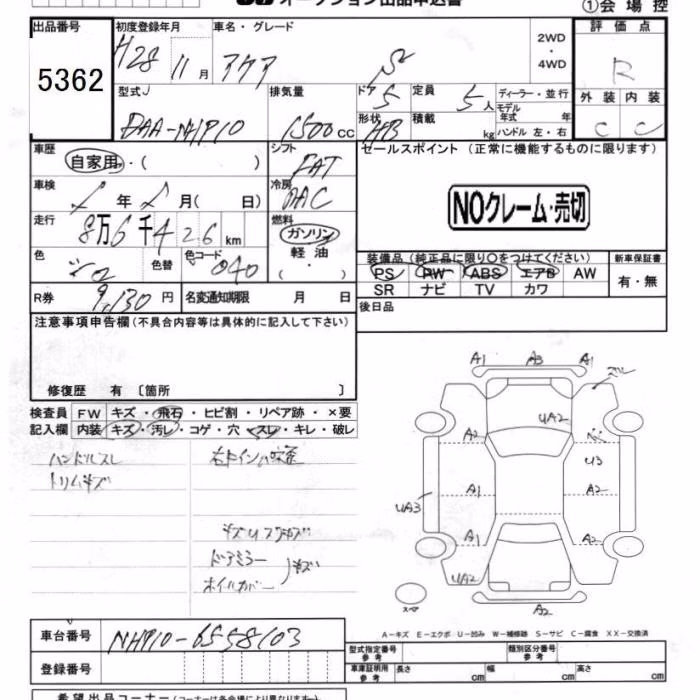 オークション出品申込書
①会場控
出品番号 5362
初度登録年月 H28 11月
車名・グレード アクア S
2WD・4WD
評価点 R
型式 DAA-NHP10
排気量 1500cc
ドア 5
定員 5人
ディーラー・並行
モデル年式 年
形状 HB
積載 kg
ハンドル 左・右
外装 C
内装 C
車歴 自家用・( )
シフト FAT
セールスポイント (正常に機能するものに限ります)
車検 年 月( 日)
冷房 AAC
NOクレーム・売切
走行 8万6千426km
燃料 ガソリン・軽油・( )
色 シロ
色替
色コード 040
装備品 (純正品に限り○をつけてください)
PS PW ABS エアB AW
SR ナビ TV カワ
新車保証書 有・無
R券 9,130円
名変通知期限 月 日
後日品
注意事項申告欄(不具合内容等は具体的に記入して下さい)
修復歴 有〔箇所 〕
検査員記入欄
FW キズ・飛石・ヒビ割・リペア跡・×要
内装 キズ・汚レ・コゲ・穴・スレ・キレ・破レ
ハンドルスレ
トリムキズ
ドアミラー
ホイルカバー
キズ
A1 A3 A1
UA2
A2
U3
A1 A2
UA3
A1 A2
UA2
スペア
A2
A-キズ E-エクボ U-凹み W-補修跡 S-サビ C-腐食 XX-交換済
車台番号 NHP10-6558103
登録番号
型式指定番号 参考
類別区分番号 参考
車庫証明用 参考 長さ cm 幅 cm 高さ cm
希望出品コーナー(コーナーは各会場により異なります)